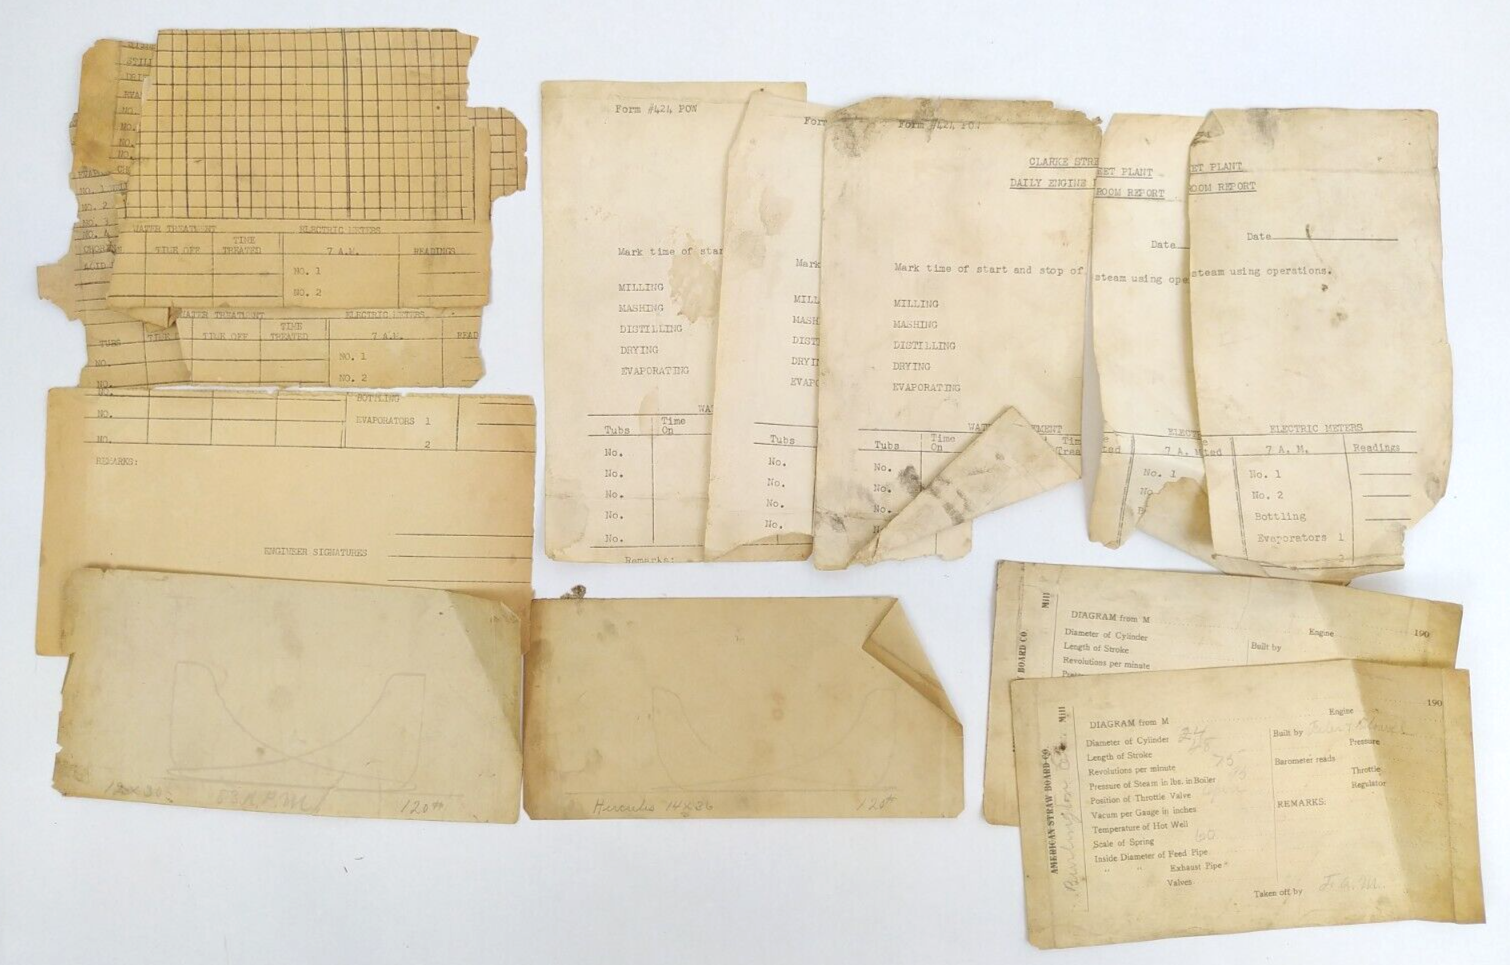 STILL
NO.
NO.
NO. 1
NO. 2
NO. 3
NO. 4
WATER TREATMENT ELECTRIC METERS
TIME OFF TIME TREATED 7 A.M. READINGS
NO. 1
NO. 2
WATER TREATMENT ELECTRIC METERS
TUBS TIME OFF TIME TREATED 7 A.M. READ
NO. NO. 1
NO. NO. 2
BOTTLING
NO. EVAPORATORS 1
NO. 2
REMARKS:
ENGINEER SIGNATURES
Form #424 POW
Mark time of star
MILLING
MASHING
DISTILLING
DRYING
EVAPORATING
WA
Tubs Time On
No.
No.
No.
No.
No.
Remarks:
For
Mark
MILL
MASH
DIST
DRYI
EVAP
Tubs
No.
No.
No.
No.
Form #424 PO
CLARKE STRE
DAILY ENGINE
Mark time of start and stop of
MILLING
MASHING
DISTILLING
DRYING
EVAPORATING
WAT EMENT
Tubs Time On Tim Trea
No.
No.
No.
EET PLANT
ROOM REPORT
Date
steam using ope
ELECT
7 A.
No. 1
No.
ET PLANT
OOM REPORT
Date
steam using operations.
ELECTRIC METERS
ted 7 A. M. Readings
No. 1
No. 2
Bottling
Evaporators 1
12x30 82 R.P.M. 120#
Hercules 14x36 120#
BOARD CO. Mill
DIAGRAM from M Engine 190
Diameter of Cylinder Built by
Length of Stroke
Revolutions per minute
AMERICAN STRAW BOARD CO. Mill
Burlington
DIAGRAM from M Engine 190
Diameter of Cylinder 24 Built by
Length of Stroke 48 Pressure
Revolutions per minute 75 Barometer reads
Pressure of Steam in lbs. in Boiler Throttle
Position of Throttle Valve open Regulator
Vacum per Gauge in inches REMARKS:
Temperature of Hot Well
Scale of Spring 60
Inside Diameter of Feed Pipe
" " Exhaust Pipe
Valves
Taken off by F.A.M.